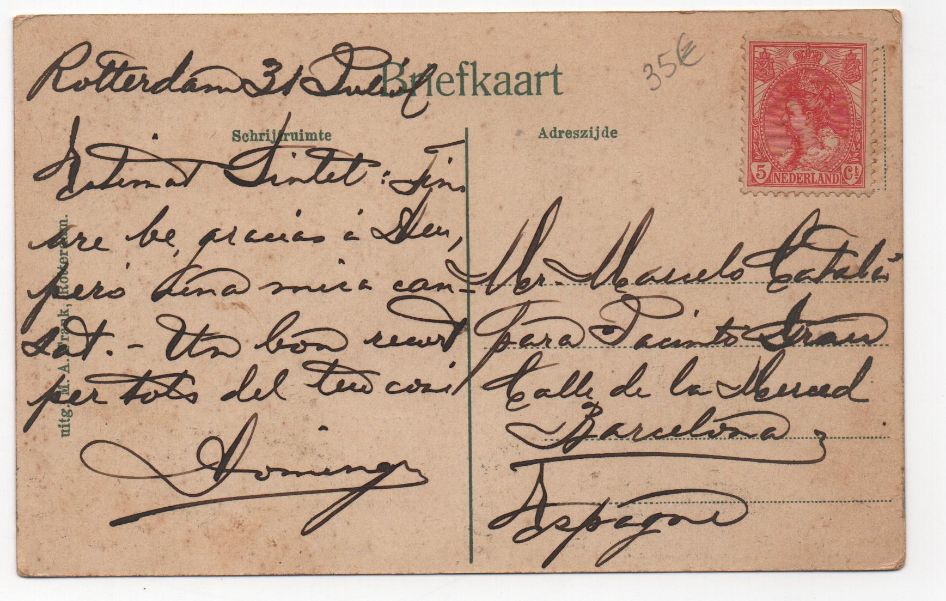 Rotterdam 31 Juliol
Briefkaart
35€
Schrijfruimte
Adreszijde
5 NEDERLAND Ct
Estimat Sintet: Fins
are bé, gracias á Deu,
peró una mica can-
sat. - Un bon recort
per tots del teu cosí
Domingo
uitg. M. A. Vrank, Rotterdam.
Mr. Marcelo Catalá
para Jacinto Grau
Calle de la Merced
Barcelona
Espagne